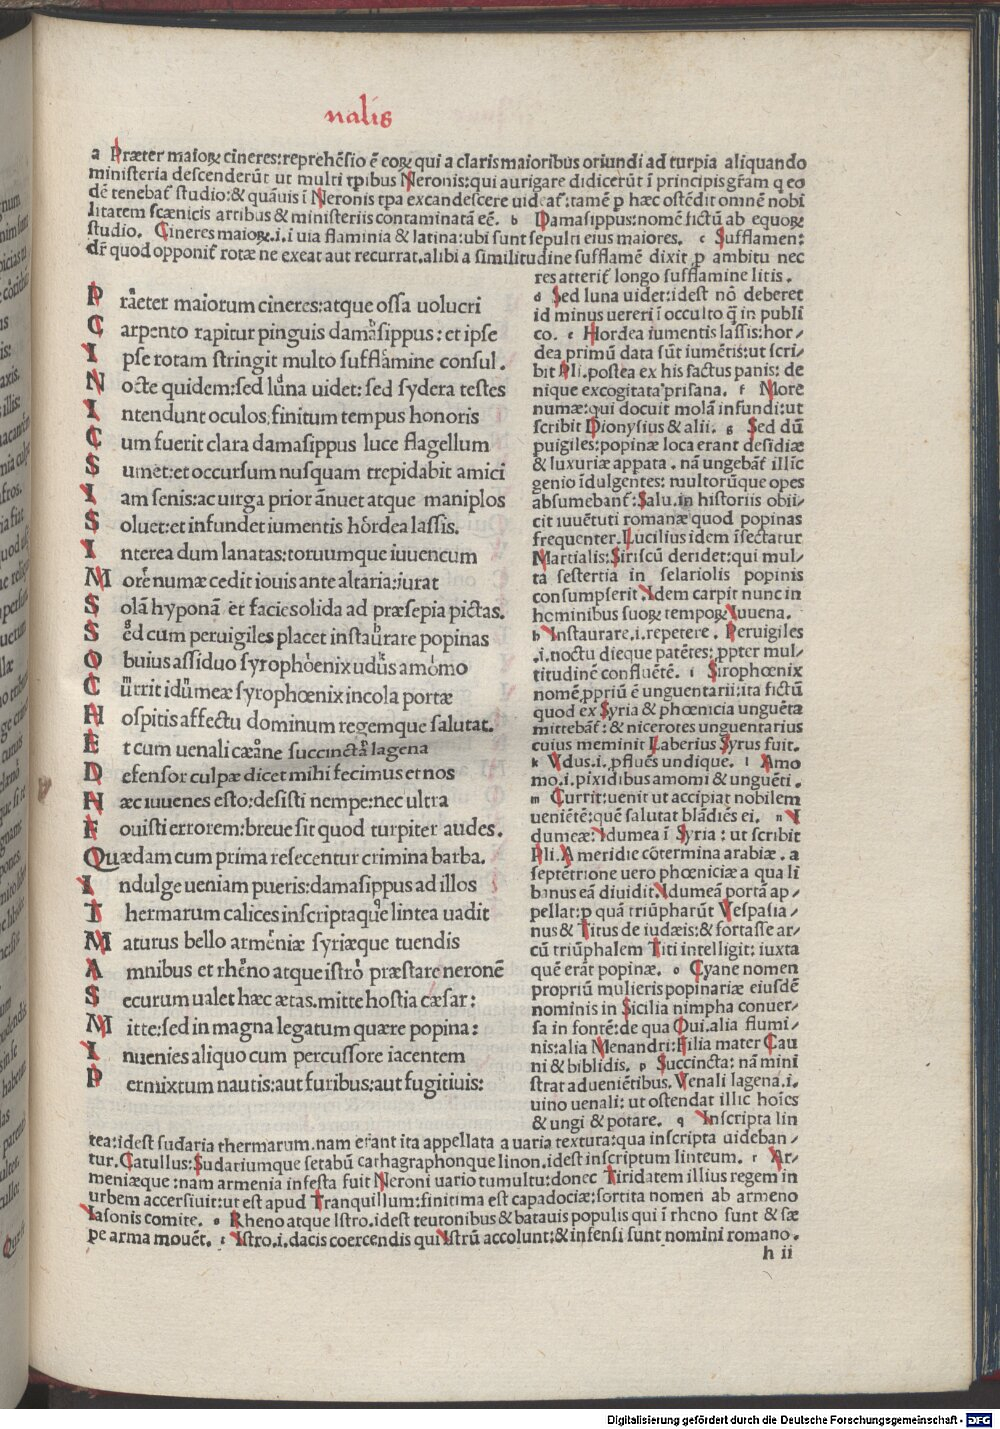 nalis
a Præter maioꝝ cineres:reprehēsio ē eoꝝ qui a claris maioribus oriundi ad turpia aliquando
ministeria descenderūt ut multi tꝑibus Neronis:qui aurigare didicerūt ī principis gr̄am q eo
dē tenebat᷑ studio:& quāuis ī Neronis tꝑa excandescere uideat᷑:tamē ꝑ hæc ostēdit omnē nobi
litatem scænicis artibus & ministeriis contaminatā eē. b Damasippus:nomē fictū ab equoꝝ
studio. Cineres maioꝝ.i.i uia flaminia & latina:ubi sunt sepulti eius maiores. c Sufflamen:
dr̄ quod opponit᷑ rotæ ne exeat aut recurrat.alibi a similitudine sufflamē dixit ꝓ ambitu nec
res atterit᷑ longo sufflamine litis.
Præter maiorum cineres:atque ossa uolucri
Carpento rapitur pinguis damasippus:et ipse
Ipse rotam stringit multo sufflamine consul.
Nocte quidem:sed luna uidet:sed sydera testes
Intendunt oculos.finitum tempus honoris
Cum fuerit clara damasippus luce flagellum
Sumet:et occursum nusquam trepidabit amici
Iam senis:ac uirga prior annuet atque maniplos
Soluet:et infundet iumentis hordea lassis.
Interea dum lanatas:toruumque iuuencum
More numæ cedit iouis ante altaria:iurat
Solā hyponā et facie solida ad præsepia pictas.
Sed cum peruigiles placet instaurare popinas
Obuius assiduo syrophoenix udus amomo
Currit idumeæ syrophœnix incola portæ
Hospitis affectu dominum regemque salutat.
Et cum uenali cæane succincta lagena
Defensor culpæ dicet mihi fecimus et nos
Hæc iuuenes esto:desisti nempe:nec ultra
Fouisti errorem:breue sit quod turpiter audes.
Quædam cum prima resecentur crimina barba.
Indulge ueniam pueris:damasippus ad illos
Thermarum calices inscriptaque lintea uadit
Maturus bello armeniæ syriæque tuendis
Amnibus et rheno atque istro præstare neronē
Securum ualet hæc ætas.mitte hostia cæsar:
Mitte:sed in magna legatum quære popina:
Inuenies aliquo cum percussore iacentem
Permixtum nautis:aut furibus:aut fugitiuis:
d Sed luna uidet:idest nō deberet
id minus uereri ī occulto q̄ in publi
co. e Hordea iumentis lassis:hor⸗
dea primū data sūt iumētis:ut scri⸗
bit Pli.postea ex his factus panis: de
nique excogitata ptisana. f More
numæ:qui docuit molā infundi:ut
scribit Dionysius & alii. g Sed dū
puigiles:popinæ loca erant desidiæ
& luxuriæ appata. nā ungebāt᷑ illic
genio īdulgentes: multorūque opes
absumebant᷑:Salu.in historiis obii⸗
cit iuuētuti romanæ quod popinas
frequenter.Lucilius idem īsectatur
Martialis:Siriscū deridet:qui mul⸗
ta sestertia in selariolis popinis
consumpserit.Idem carpit nunc in
hominibus suoꝝ tempoꝝ Iuuena.
h Instaurare.i.repetere. Peruigiles
.i.noctu dieque patētes:ꝓpter mul⸗
titudinē confluētē. i Sirophœnix
nomē ꝓpriū ē unguentarii:ita fictū
quod ex Syria & phœnicia unguēta
mittebāt᷑:& nicerotes unguentarius
cuius meminit Laberius Syrus fuit.
k Vdus.i.ꝓfluēs undique. l Amo
mo.i.pixidibus amomi & unguēti.
m Currit:uenit ut accipiat nobilem
ueniētē:quē salutat blādiēs ei. n I
dumeæ:Idumea ī Syria: ut scribit
Pli.A meridie cōtermina arabiæ. a
septētrione uero phœniciæ a qua li
banus eā diuidit.Idumeā portā ap⸗
pellat:ꝑ quā triūpharūt Vespasia⸗
nus & Titus de iudæis:& fortasse ar⸗
cū triūphalem Titi intelligit: iuxta
quē erāt popinæ. o Cyane nomen
propriū mulieris popinariæ eiusdē
nominis in Sicilia nimpha conuer⸗
sa in fontē:de qua Oui.alia flumi⸗
nis:alia Menandri:Filia mater Cau
ni & biblidis. p Succincta: nā mini
strat adueniētibus. Venali lagena.i.
uino uenali: ut ostendat illic hoīes
& ungi & potare. q Inscripta lin
tea:idest sudaria thermarum.nam erant ita appellata a uaria textura:qua inscripta uideban⸗
tur.Catullus:Sudariumque setabū cathagraphonque linon.idest inscriptum linteum. r Ar⸗
meniæque:nam armenia infesta fuit Neroni uario tumultu:donec Tiridatem illius regem in
urbem accersiuit:ut est apud Tranquillum:finitima est capadociæ:sortita nomen ab armeno
Iasonis comite. s Rheno atque Istro.idest teutonibus & batauis populis qui ī rheno sunt & sæ
pe arma mouēt. t Istro.i.dacis coercendis qui Istrū accolunt:& infensi sunt nomini romano.
h ii
Digitalisierung gefördert durch die Deutsche Forschungsgemeinschaft - DFG